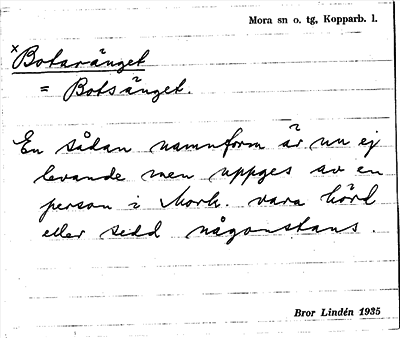 Mora sn o. tg, Kopparb. l.
x Botaränget
= Botsänget.
En sådan namnform är nu ej
levande men uppges av en
person i Mork. vara hörd
eller sedd någonstans.
Bror Lindén 1935